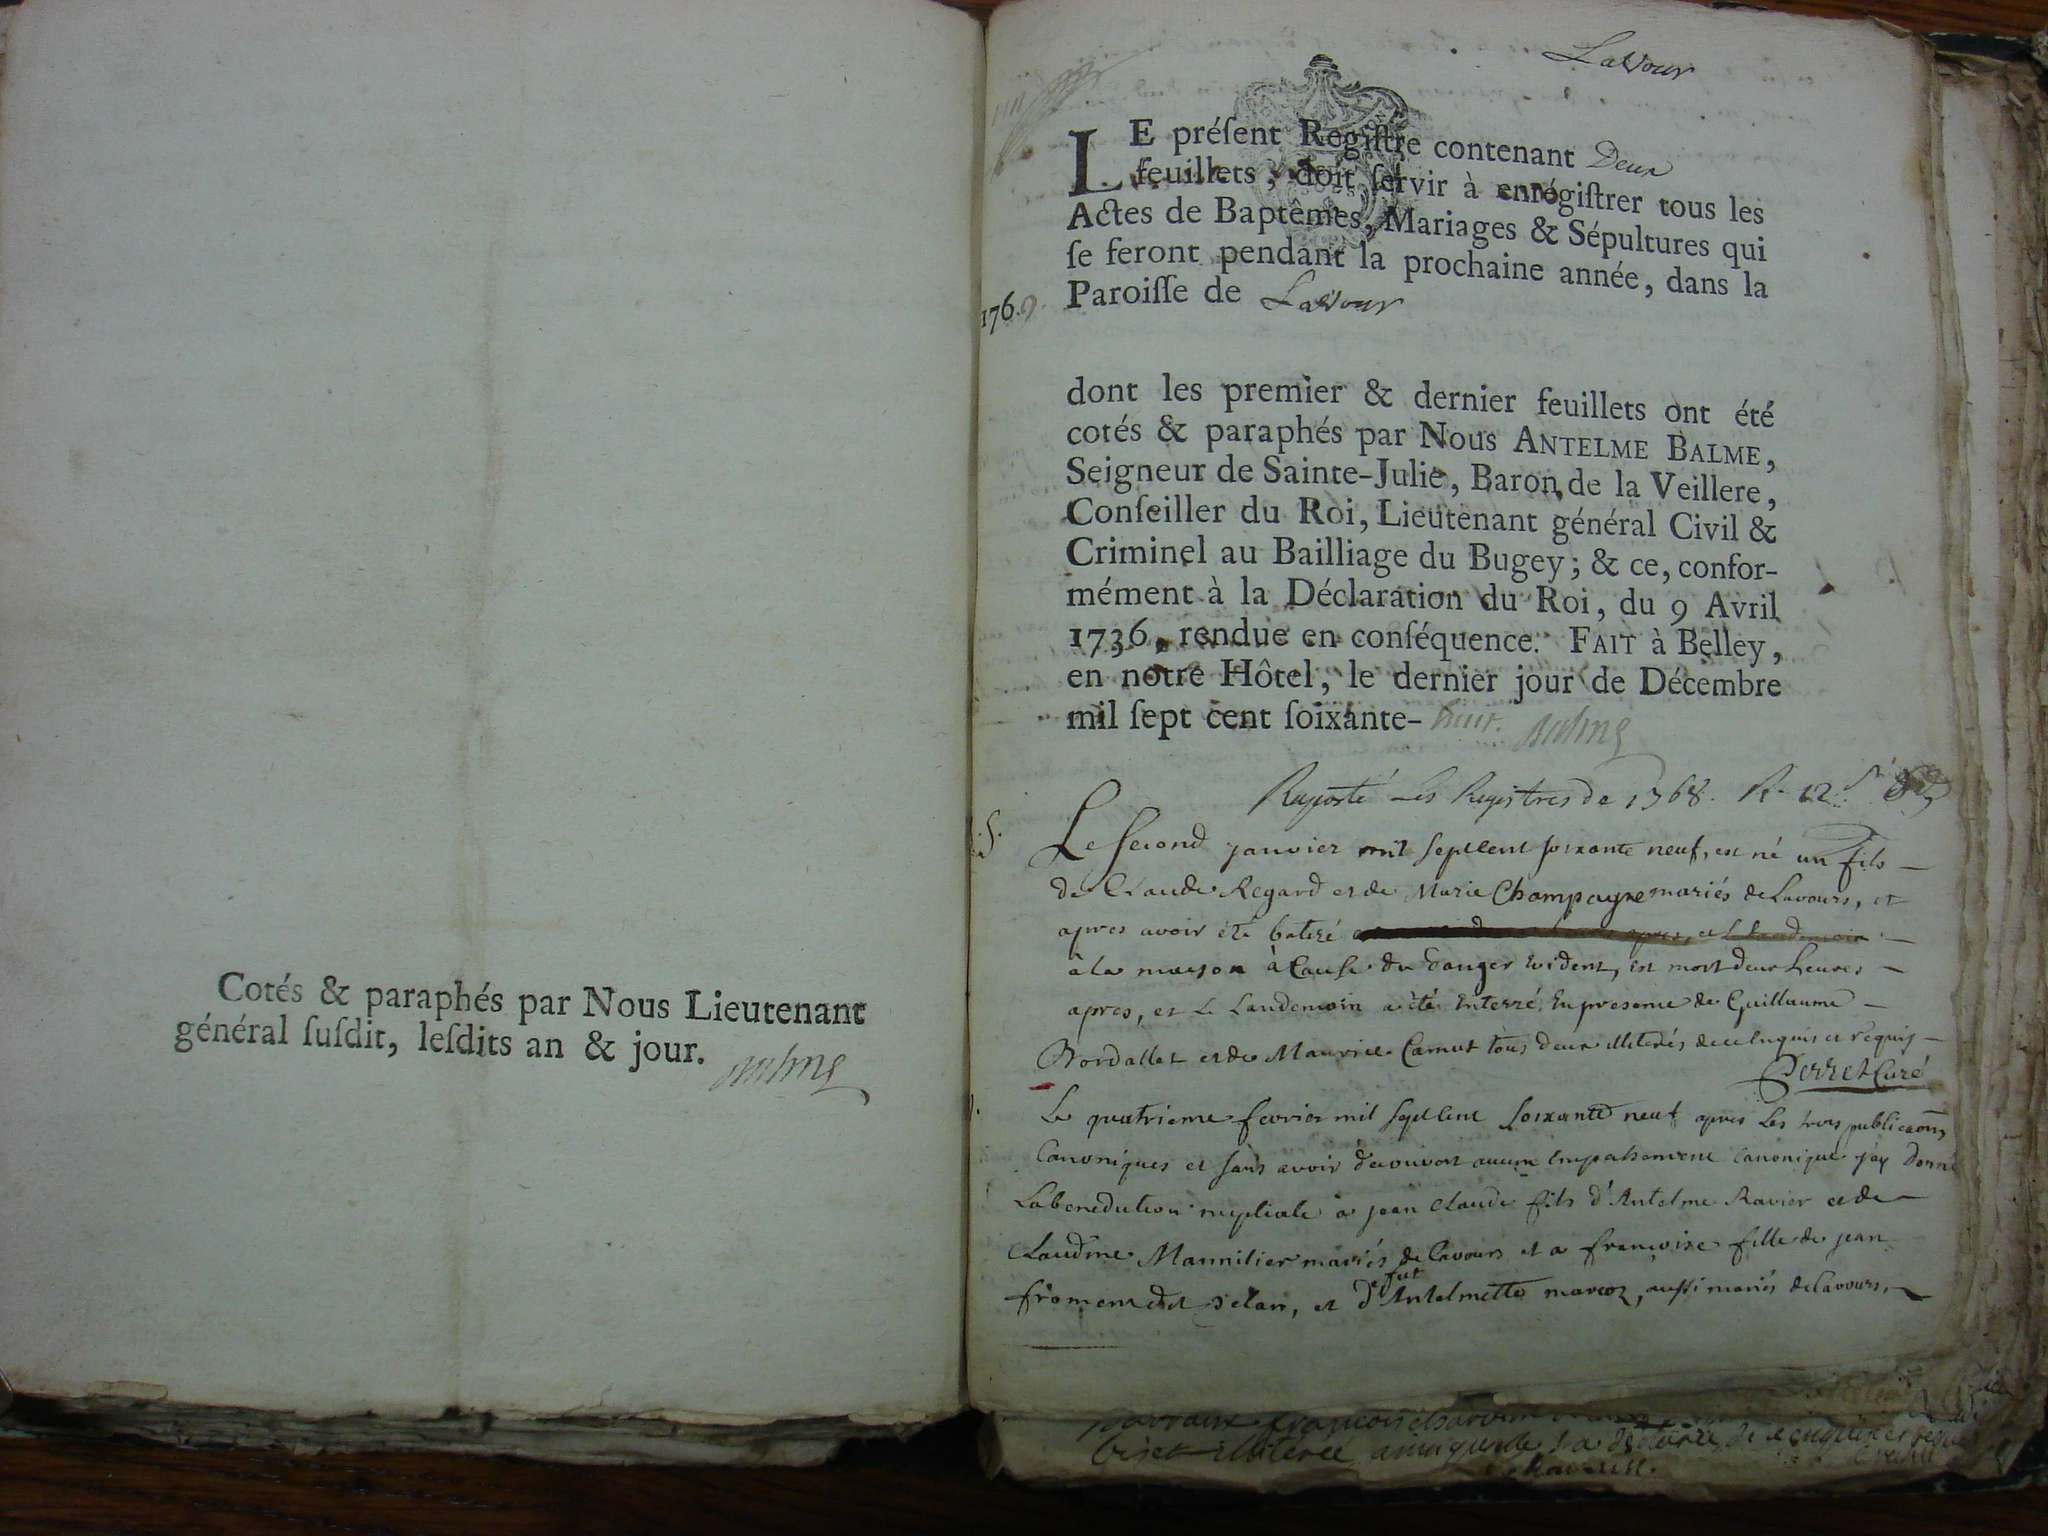 Cotés & paraphés par Nous Lieutenant
général suſdit, leſdits an & jour.
Balme
Lavour
LE préſent Regiſtre contenant Deux
feuillets, doit ſervir à enrégiſtrer tous les
Actes de Baptêmes, Mariages & Sépultures qui
ſe feront pendant la prochaine année, dans la
1769. Paroiſſe de Lavour
dont les premier & dernier feuillets ont été
cotés & paraphés par Nous ANTELME BALME,
Seigneur de Sainte-Julie, Baron de la Veillere,
Conſeiller du Roi, Lieutenant général Civil &
Criminel au Bailliage du Bugey; & ce, confor-
mément à la Déclaration du Roi, du 9 Avril
1736, rendue en conſéquence. FAIT à Belley,
en notre Hôtel, le dernier jour de Décembre
mil ſept cent ſoixante- huit. Balme
Raporté les Registres de 1768. R. 12
S. Le second janvier mil sept cent soixante neuf, est né un fils
de Claude Regard et de Marie Champagne mariés de Lavours, et
apres avoir été batizé
à la maison à cause du danger evident, est mort deux heures
apres, et le landemain a été enterré en presence de Guillaume
Bordallet et de Maurice Camut tous deux illiterés de ce enquis et requis
Perret Curé
Le quatrieme fevrier mil sept cent soixante neuf apres les trois publicaōns
Canoniques et sans avoir decouvert aucun empechement canonique j'ay donné
la benediction nuptiale a jean Claude fils d'Antelme Ravier et de
Claudine Mannilier mariés de Lavours et a françoise fille de jean
froment dit , et d' fut Antelmette marcoz, aussi mariés de Lavours,
parrain françois
illiteré a marque de sa de ce enquis et requis